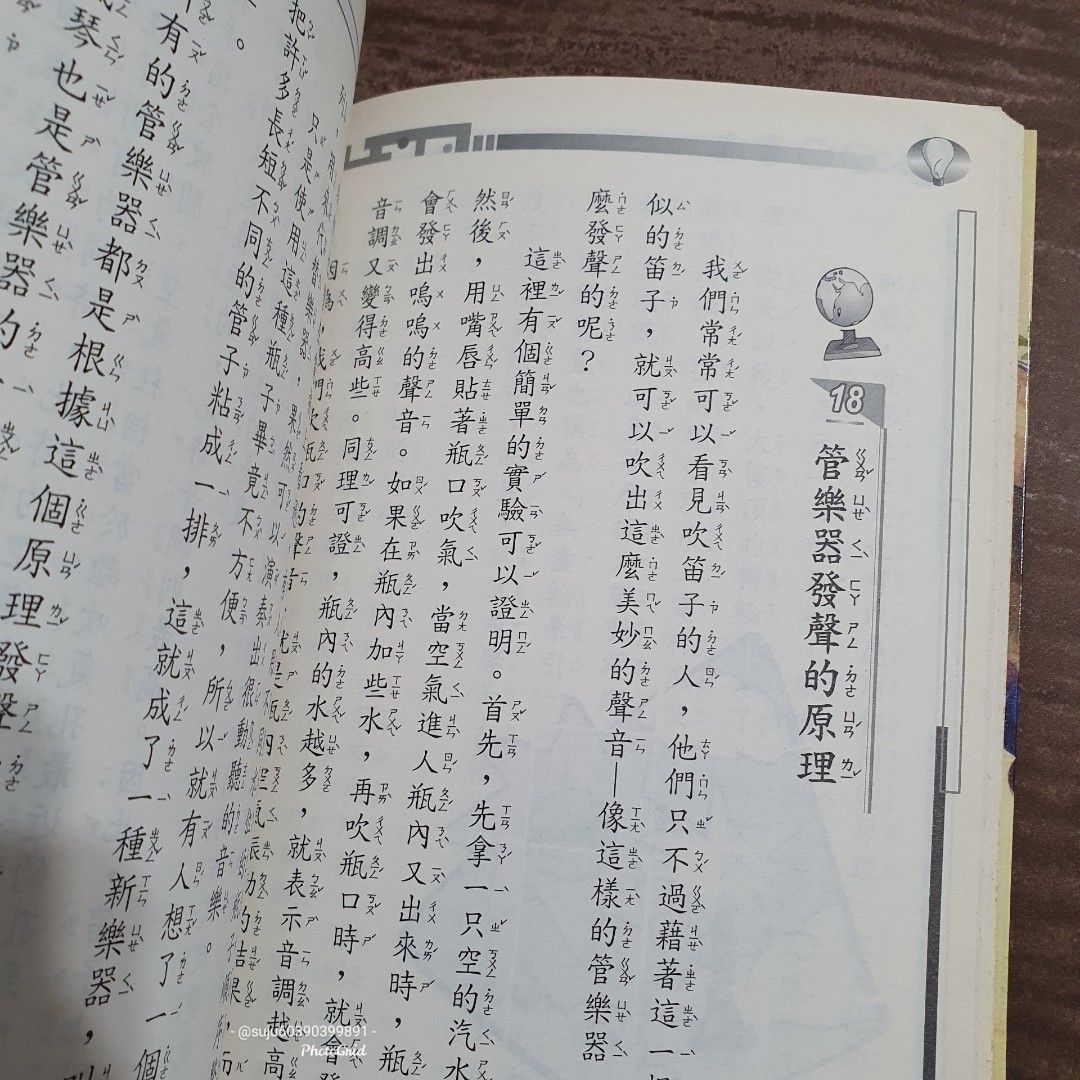 18
管樂器發聲的原理
我們常常可以看見吹笛子的人，他們只不過藉著這一
似的笛子，就可以吹出這麼美妙的聲音—像這樣的管樂器
麼發聲的呢？
這裡有個簡單的實驗可以證明。首先，先拿一只空的汽水
然後，用嘴唇貼著瓶口吹氣，當空氣進人瓶內又出來時，瓶
會發出嗚嗚的聲音。如果在瓶內加些水，再吹瓶口時，就會發
音調又變得高些。同理可證，瓶內的水越多，就表示音調越高
果然可以演奏出很動聽的音樂。
只是使用這種瓶子畢竟不方便，所以就有人想了一個
把許多長短不同的管子粘成一排，這就成了一種新樂器，
有的管樂器都是根據這個原理發聲
琴也是管樂器的
- @suju60390399891 -
PhotoGrid